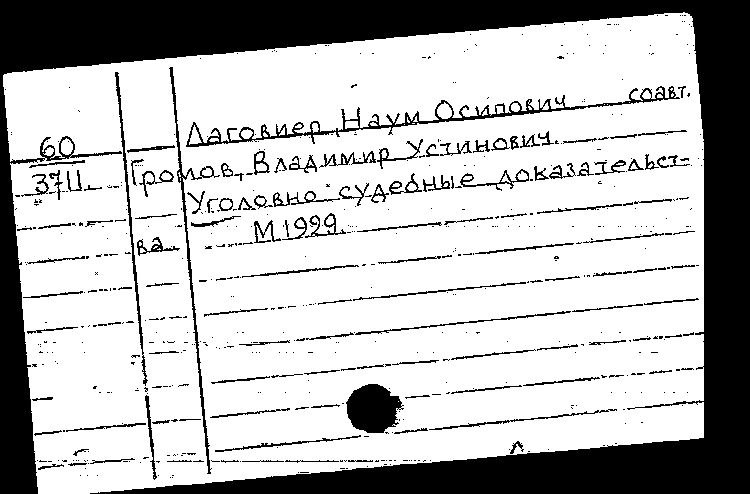 Лаговиер, Наум Осипович соавт.
60
3711.
Громов, Владимир Устинович.
Уголовно-судебные доказательст-
ва М.1929.